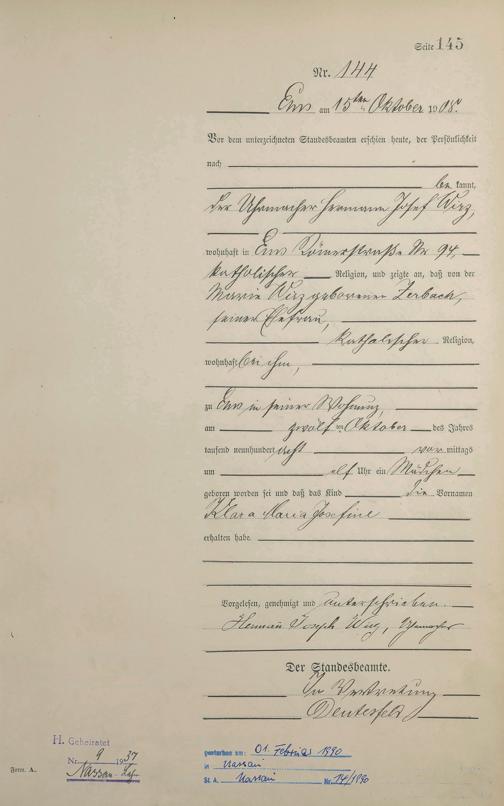 Seite 145
Nr. 144
Ems am 15ten Oktober 1908.
Vor dem unterzeichneten Standesbeamten erschien heute, der Persönlichkeit
nach
be kannt,
der Uhrmacher Hermann Josef Wirz,
wohnhaft in Ems Römerstraße Nr 94,
katholischer Religion, und zeigte an, daß von der
Maria Wirz geborenen Zerbach,
seiner Ehefrau,
katholischer Religion,
wohnhaft bei ihm,
zu Ems in seiner Wohnung,
am zwölften Oktober des Jahres
tausend neunhundert acht vor mittags
um elf Uhr ein Mädchen
geboren worden sei und daß das Kind die Vornamen
Klara Maria Josefine
erhalten habe.
Vorgelesen, genehmigt und unterschrieben.
Hermann Joseph Wirz, Uhrmacher
Der Standesbeamte.
In Vertretung
H. Geheiratet
Nr. 9 1937
Nassau
Form. A.
gestorben am: 01. Februar 1990
in Nassau
St. A. Nassau Nr. 14/1990